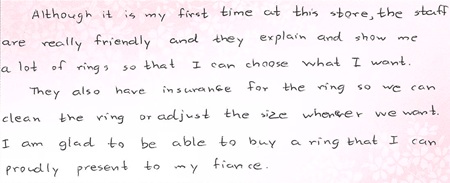 Although it is my first time at this store, the staff
are really friendly and they explain and show me
a lot of rings so that I can choose what I want.
They also have insurance for the ring so we can
clean the ring or adjust the size whenever we want.
I am glad to be able to buy a ring that I can
proudly present to my fiance.